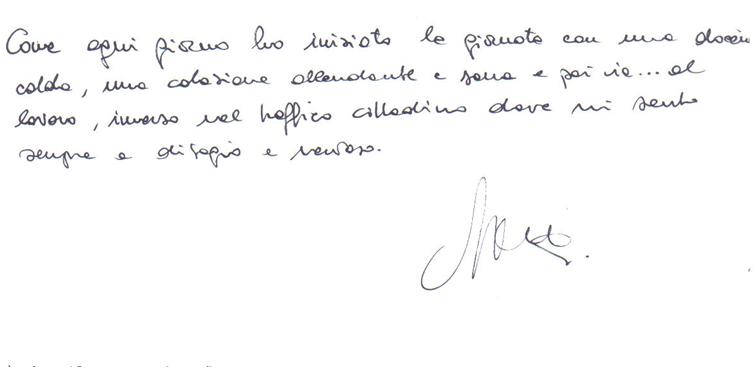 Come ogni giorno ho iniziato la giornata con una doccia
calda, una colazione abbondante e sana e poi via... al
lavoro, immerso nel traffico cittadino dove mi sento
sempre a disagio e nervoso.